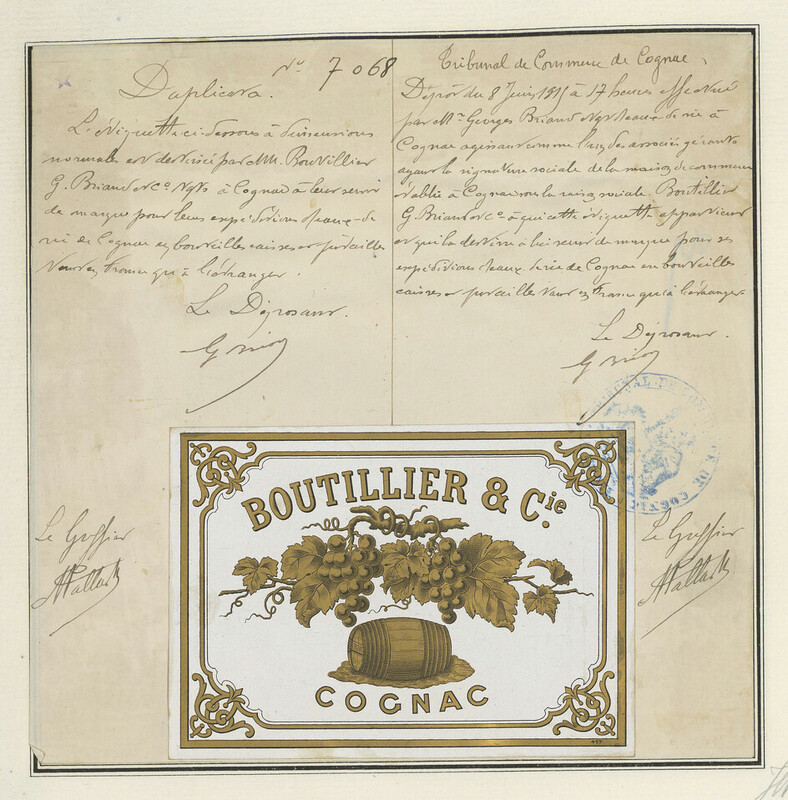 Duplicata.
Nº 7068
L'étiquette ci-dessous à dimensions
normales est destinée par MM. Boutillier
G. Briand & Cº Ngts à Cognac à leur servir
de marque pour leurs expéditions d'eaux-de-
vie de Cognac en bouteilles caisses et futailles
tant en France qu'à l'étranger.
Le Déposant.
Tribunal de Commerce de Cognac.
Dépôt du 8 Juin à 17 heures effectué
par Mr Georges Briand Ngt d'eaux-de-vie à
Cognac agissant comme l'un des associés gérants
ayant la signature sociale de la maison de commerce
établie à Cognac sous la raison sociale Boutillier
G. Briand & Cº à qui cette étiquette appartient
et qui la destine à lui servir de marque pour ses
expéditions d'eaux-de-vie de Cognac en bouteilles
caisses et futailles tant en France qu'à l'étranger.
Le Déposant.
TRIBUNAL DE COMMERCE DE COGNAC
BOUTILLIER & Cie.
COGNAC
Le Greffier
Le Greffier